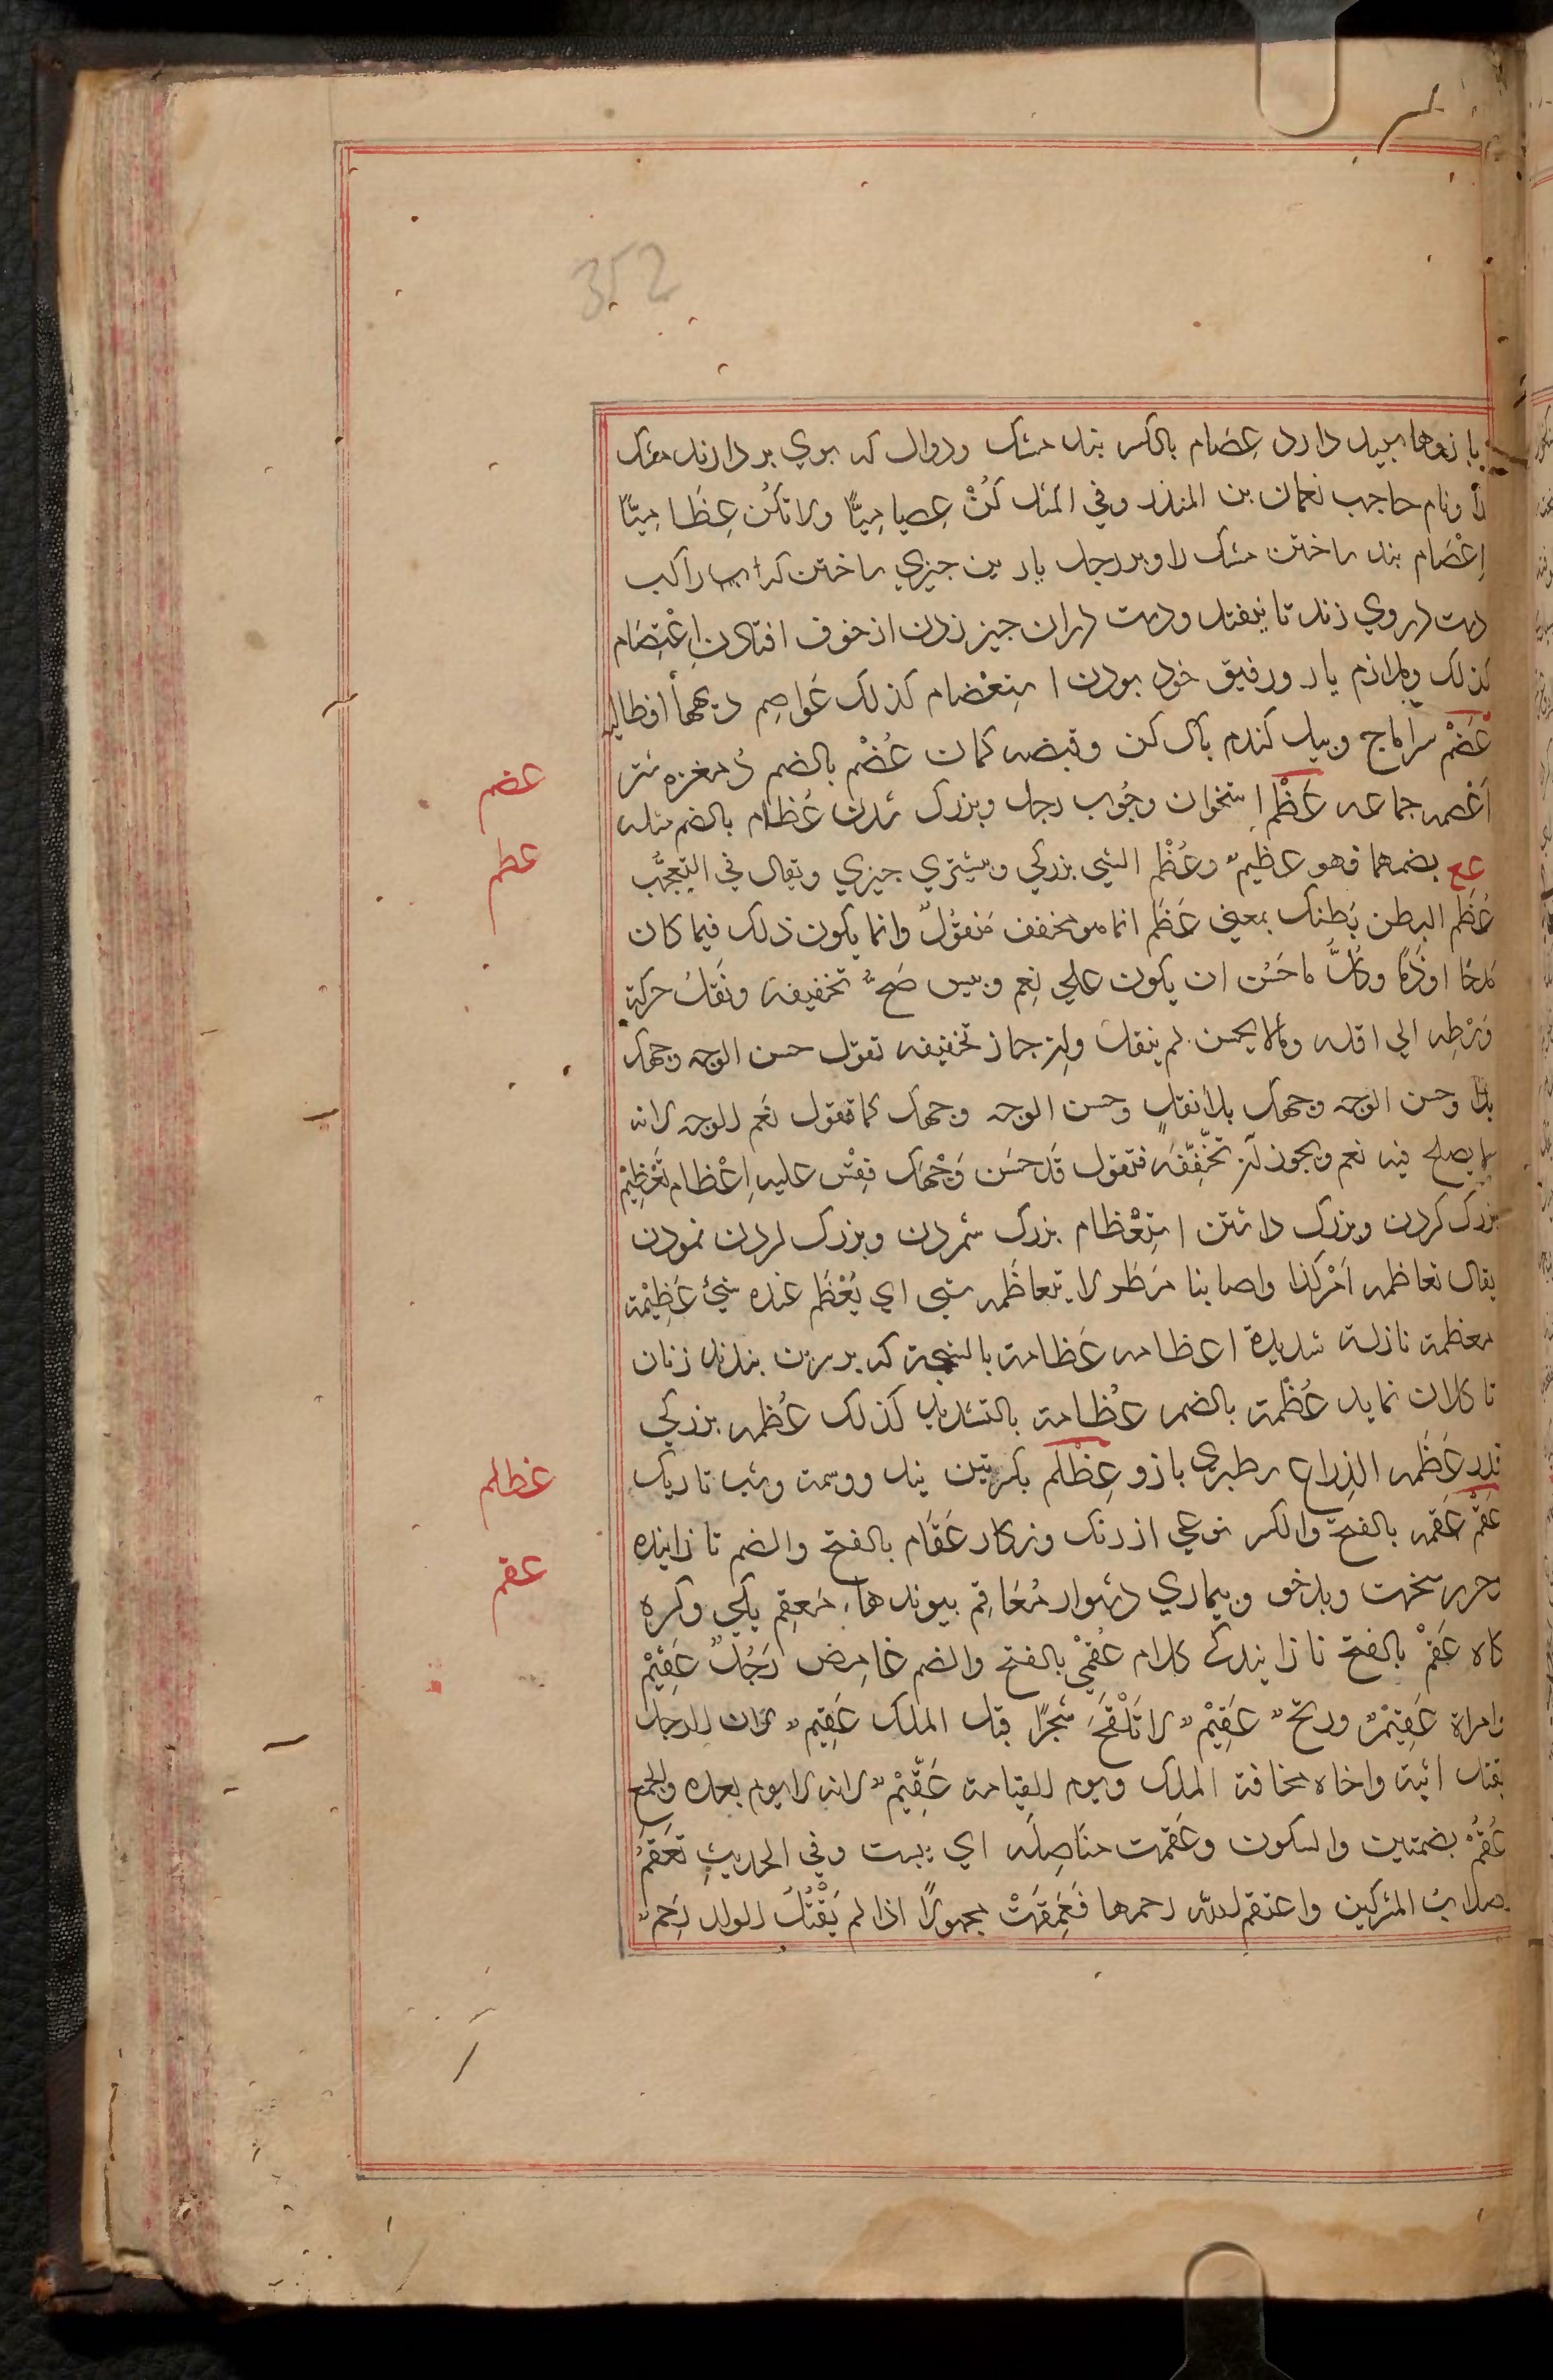 352
بازوها سپيد دارد عِصَام بالكسر بند مشك ودوال كه بوي بردارند مشك
را ونام حاجب نعمان بن المنذر وفي المثل كُنْ عِصَامِيًّا ولا تكُن عِظَامِيًّا
اِعْصَام بند ساختن مشك را وبر رحل يا زين چيزي ساختن كه راكب
دست دروي زند تا نيفتد ودست دران چيز زدن از خوف افتادن اِعْتِصَام
كذلك وملازم يار ورفيق خود بودن اِستِعْصَام كذلك عَواصِم
عضم
عَضْم سر اماج وبيل كندم پاك كن وقبضه كمان عُضْم بالضم دُمغزه شتر
عظم
اَعْضمه جماعه عَظْم استخوان وچُوب رحل وبزرك شدن عُظَام بالضم مثله
عع بضمهما فهو عظيمٌ وعُظْم الشي بزركي وبيشتري چيزي ويقال في التعجُّب
عُظْم البطن بَطنك بمعني عَظُم انما هو مخفف مَنقُولٌ وانما يكون ذلك فيما كان
مَدحًا او ذَمًّا وكُلُّ ما حَسُن ان يكون علي نِعم وبيس صَحَّ تخفيفه ونَقَلُ حركة
وَسْطِه الي اوله وما لا يحسن لم ينقل وان جاز تخفيفه تقول حسن الوجه وجهك
وحسن الوجه وجهك بلا نقلٍ وحسن الوجه وجهك كما تقول نعم الوجه لانه
لا يصلح فيه نعم ويجوز ان تخفّفه فتقول قَد حسَن وَجْهك فقِسْ عليه اِعْظام تَعْظِيْم
بزرك كردن وبزرك داشتن اِستِعْظام بزرك شمردن وبزرك كردن نمودن
يقال تعاظمه اَمْر كذا واصابنا مَطَر لا يتعاظَمه شي اي يَعْظُم عنده شيٌ عَظِيْمة
معظمة نازلة شديدة اعظامه عَظامة بالشيخة كه بر سرين بندند زنان
تا كلان نمايد عُظْمة بالضم عُظَّامة بالتشديد كذلك عُظْمه بزركي
عظلم
عَظَمه الذِراع سطبري بازو عِظْلِم بكسرتين نيل ووسمه وشب تاريك
عقم
عَقْم عَقمه بالفتح والكسر نوعي از رنك ونكار عَقَام بالفتح والضم نازاينده
وحرب سخت وبدخو وبيماري دشوار مُعَاقِم پيوندها، مَعقِم يكي وكره
كاه عَقْم بالفتح نازايندكي كلام عُقْمِي بالفتح والضم غامِض رَجُلٌ عَقِيْم
وامراة عَقِيْمٌ وريحٌ عَقِيْمٌ لا تَلْقَح شجرًا قيل الملك عَقِيمٌ لان الرجل
يقتل ابنه واخاه مخافة الملك ويوم القيامة عَقِيْمٌ لانه لا يوم بعده والجمع
عُقُمْ بضمتين والسكون وعَقمت مفَاصِلَه اي يبست وفي الحديث تَعقَمُ
اصلاب المشركين واعتقم الله رحمها فعَقِمَتْ مجهولًا اذا لم يَقْبَل الولد رَحِمٌ